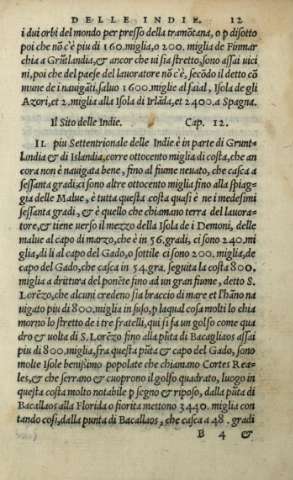 DELLE INDIE. 12
i dui orbi del mondo per presso della tramõtana, o p disotto
poi che nõ c'è piu di 160. miglia, o 200. miglia de Finmar
chia a Grũelandia, & ancor che ui sia stretto, sono assai uici
ni, poi che del paese del lauoratore nõ c'è, secõdo il detto cõ
mune de i nauigãti, saluo 1600. miglie al faial, Isola de gli
Azori, et 2. miglia alla Isola di Irlãda, et 2400. a Spagna.
Il Sito delle Indie. Cap. 12.
IL piu Settentrionale delle Indie è in parte di Grunt-
landia & di Islandia, corre ottocento miglia di costa, che an
cora non è nauigata bene, fino al fiume neuato, che casca a
sessanta gradi: ci sono altre ottocento miglia fino alla spiag-
gia delle Malue, & tutta questa costa quasi è ne i medesimi
sessanta gradi, & è quello che chiamano terra del lauora-
tore, & tiene uerso il mezzo della Isola de i Demoni, delle
malue al capo di marzo, che è in 56. gradi, ci sono 240. mi
glia, di lì al capo del Gado, o sottile ci sono 200. miglia, de
capo del Gado, che casca in 54. gra. seguita la costa 800.
miglia a drittura del ponẽte fino ad un gran fiume, detto S.
Lorẽzo, che alcuni credeno sia braccio di mare et l'hãno na
uigato piu di 800. miglia in suso, p laqual cosa molti lo chia
morno lo stretto de i tre fratelli, qui si fa un golfo come qua
dro & uolta di S. Lorẽzo fino alla pũta di Bacagliaos assai
piu di 800. miglia, fra questa pũta & capo del Gado, sono
molte Isole benissimo popolate che chiamano Cortes Rea-
les, & che serrano & cuoprono il golfo quadrato, luogo in
questa costa molto notabile p segno & riposo, dalla pũta di
Bacallaos alla Florida o fiorita mettono 3440. miglia con
tando così, dalla punta di Bacallaos, che casca a 48. gradi
B 4 &